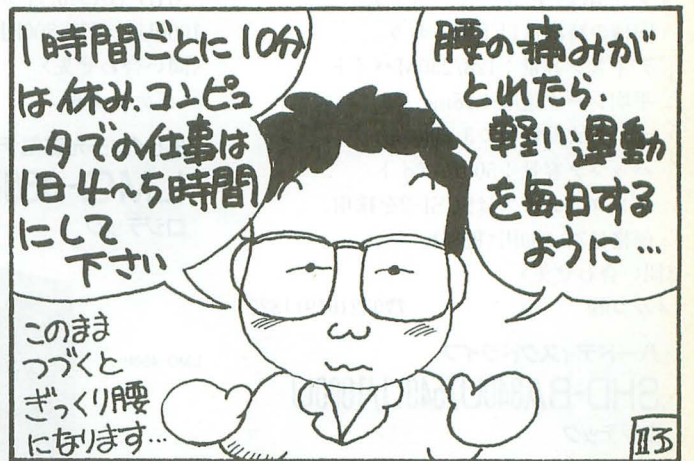 腰の痛みが
とれたら
軽い運動
を毎日する
ように…
1時間ごとに10分
は休み、コンピュ
ータでの仕事は
1日4〜5時間
にして
下さい
このまま
つづくと
ぎっくり腰
になります…